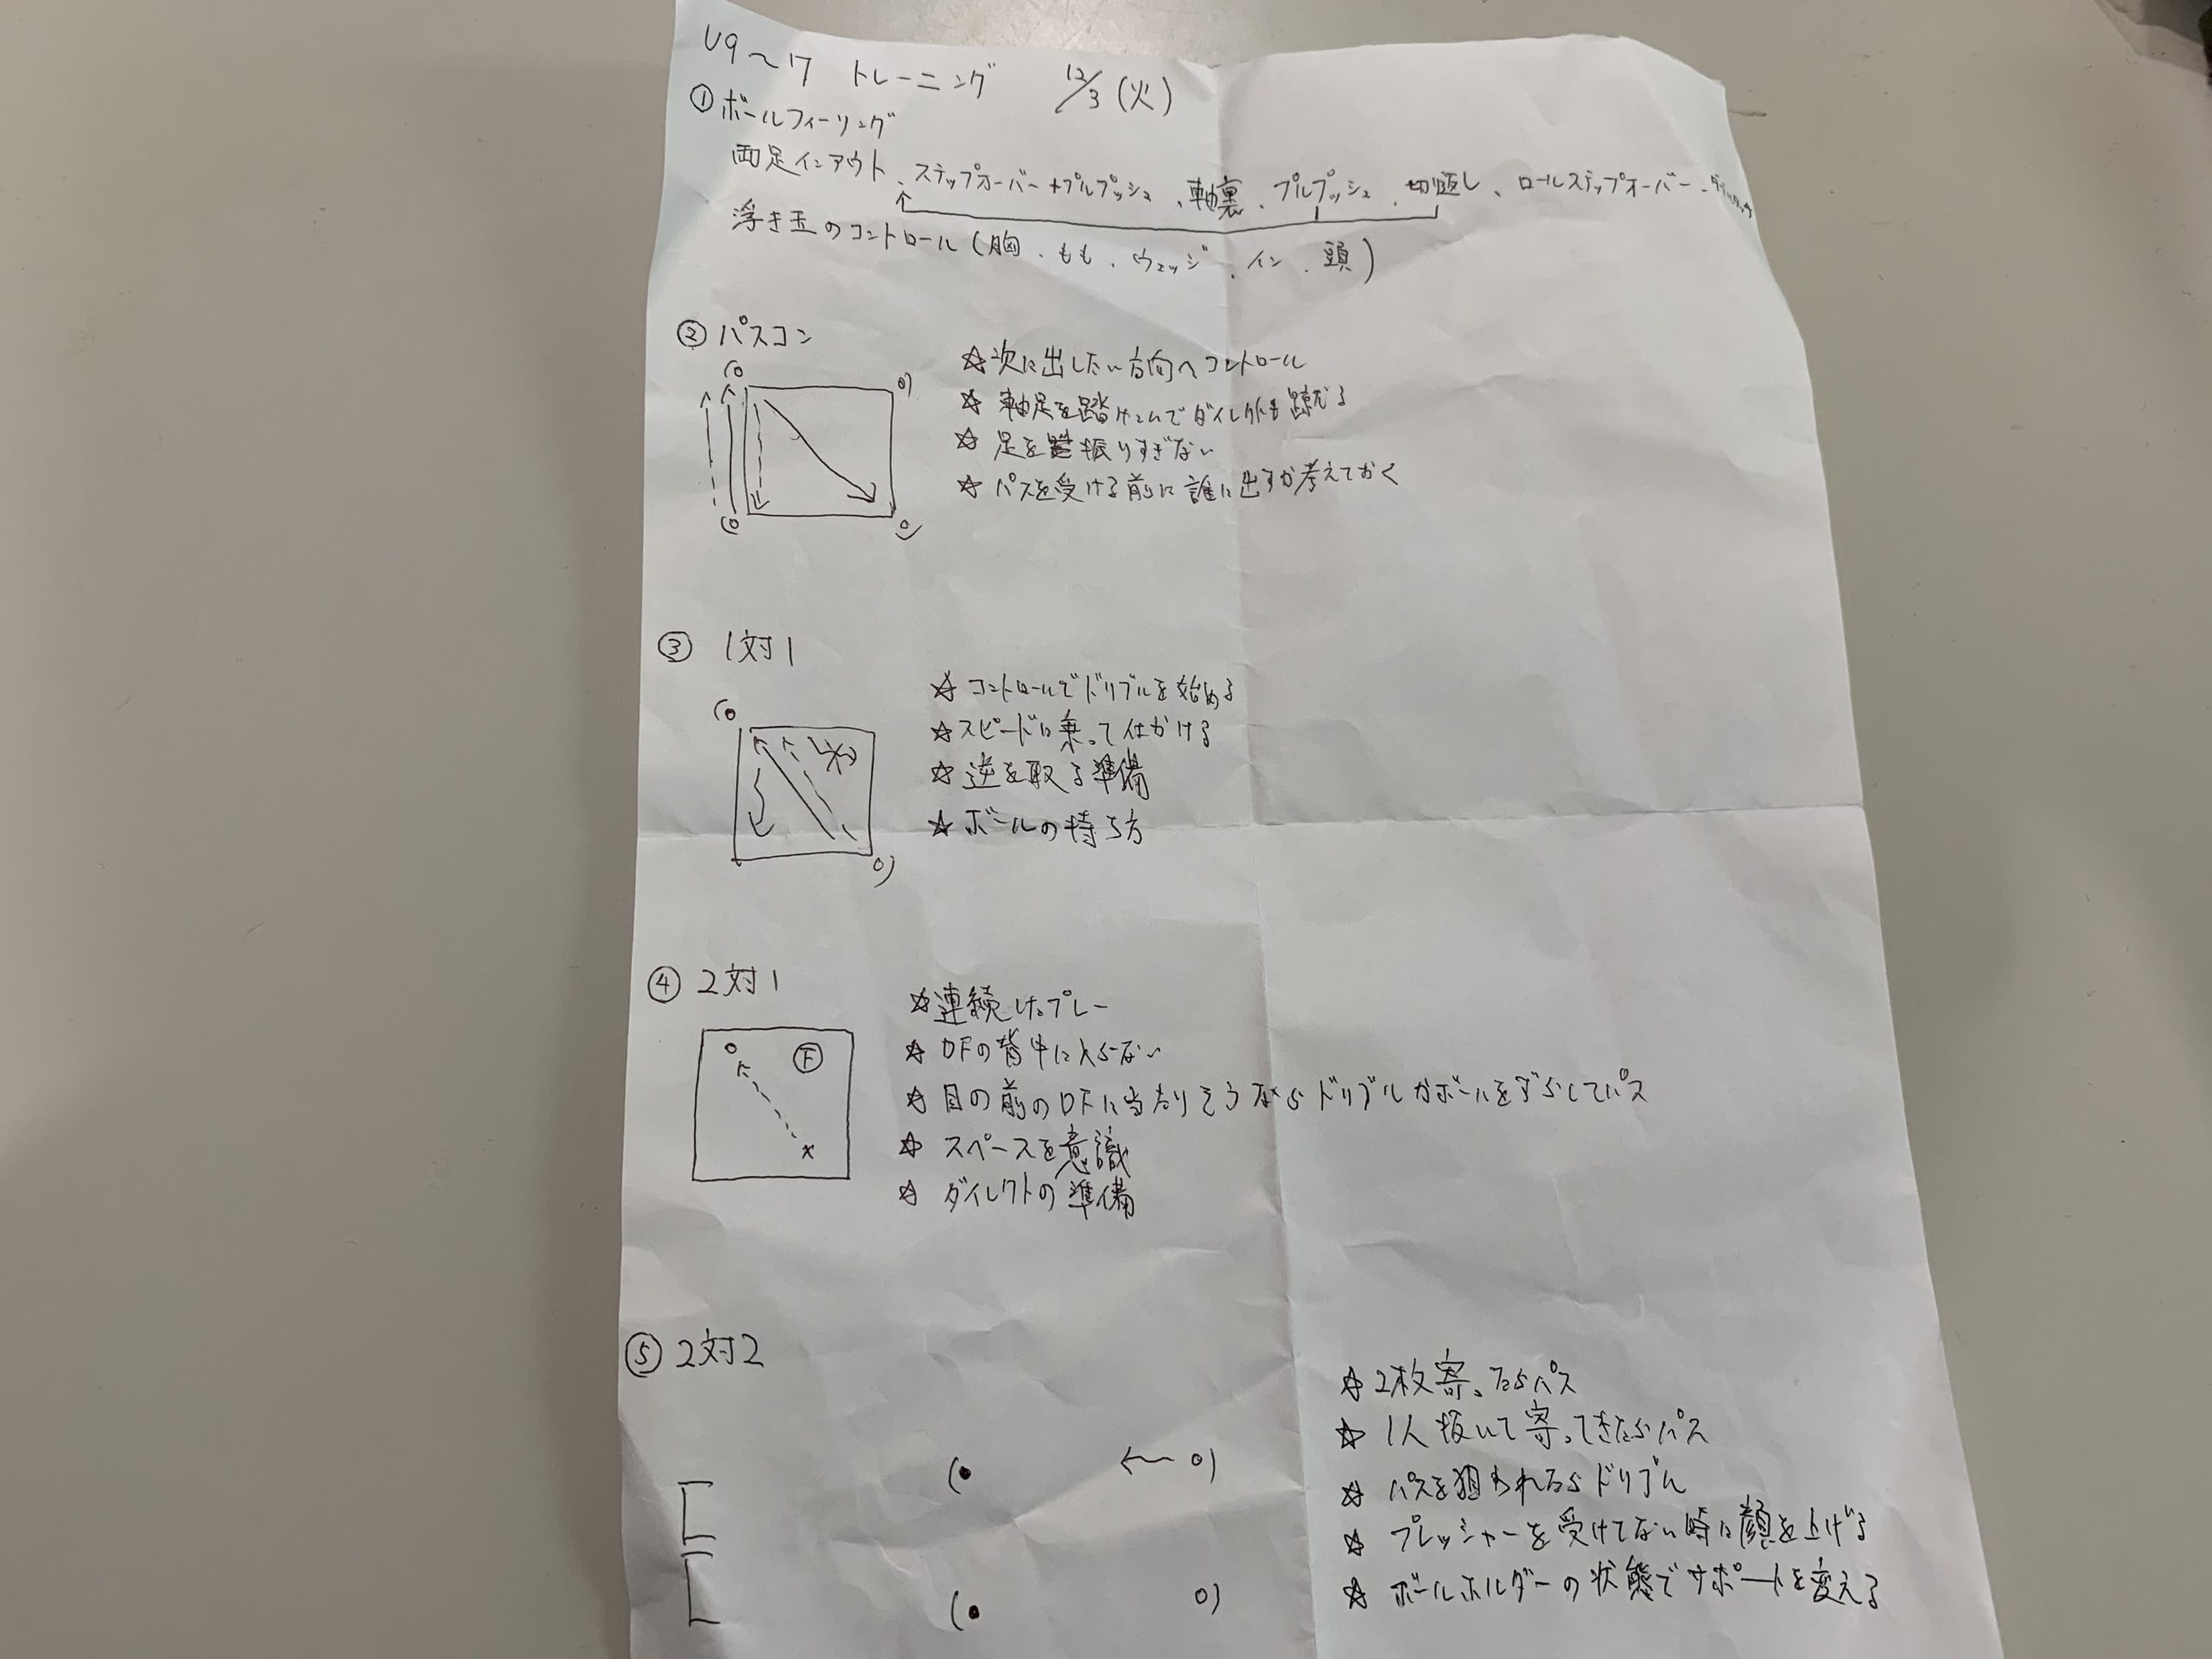 U9〜7 トレーニング 12/3(火)
①ボールフィーリング
両足インアウト、ステップオーバー+プルプッシュ、軸裏、プルプッシュ、切返し、ロールステップオーバー、
浮き玉のコントロール(胸、もも、ウェッジ、イン、頭)
②パスコン
☆次に出したい方向へコントロール
☆軸足を踏けこんでダイレクトも蹴る
☆足を振りすぎない
☆パスを受ける前に誰に出すか考えておく
③ 1対1
☆コントロールでドリブルを始める
☆スピードに乗って仕かける
☆逆を取る準備
☆ボールの持ち方
④ 2対1
☆連続したプレー
☆DFの背中に入らない
☆目の前のDFに当たりそうならドリブルかボールをずらしてパス
☆スペースを意識
☆ダイレクトの準備
F
⑤ 2対2
☆2枚寄ったらパス
☆1人抜いて寄ってきたらパス
☆パスを狙われたらドリブル
☆プレッシャーを受けてない時に顔を上げる
☆ボールホルダーの状態でサポートを変える